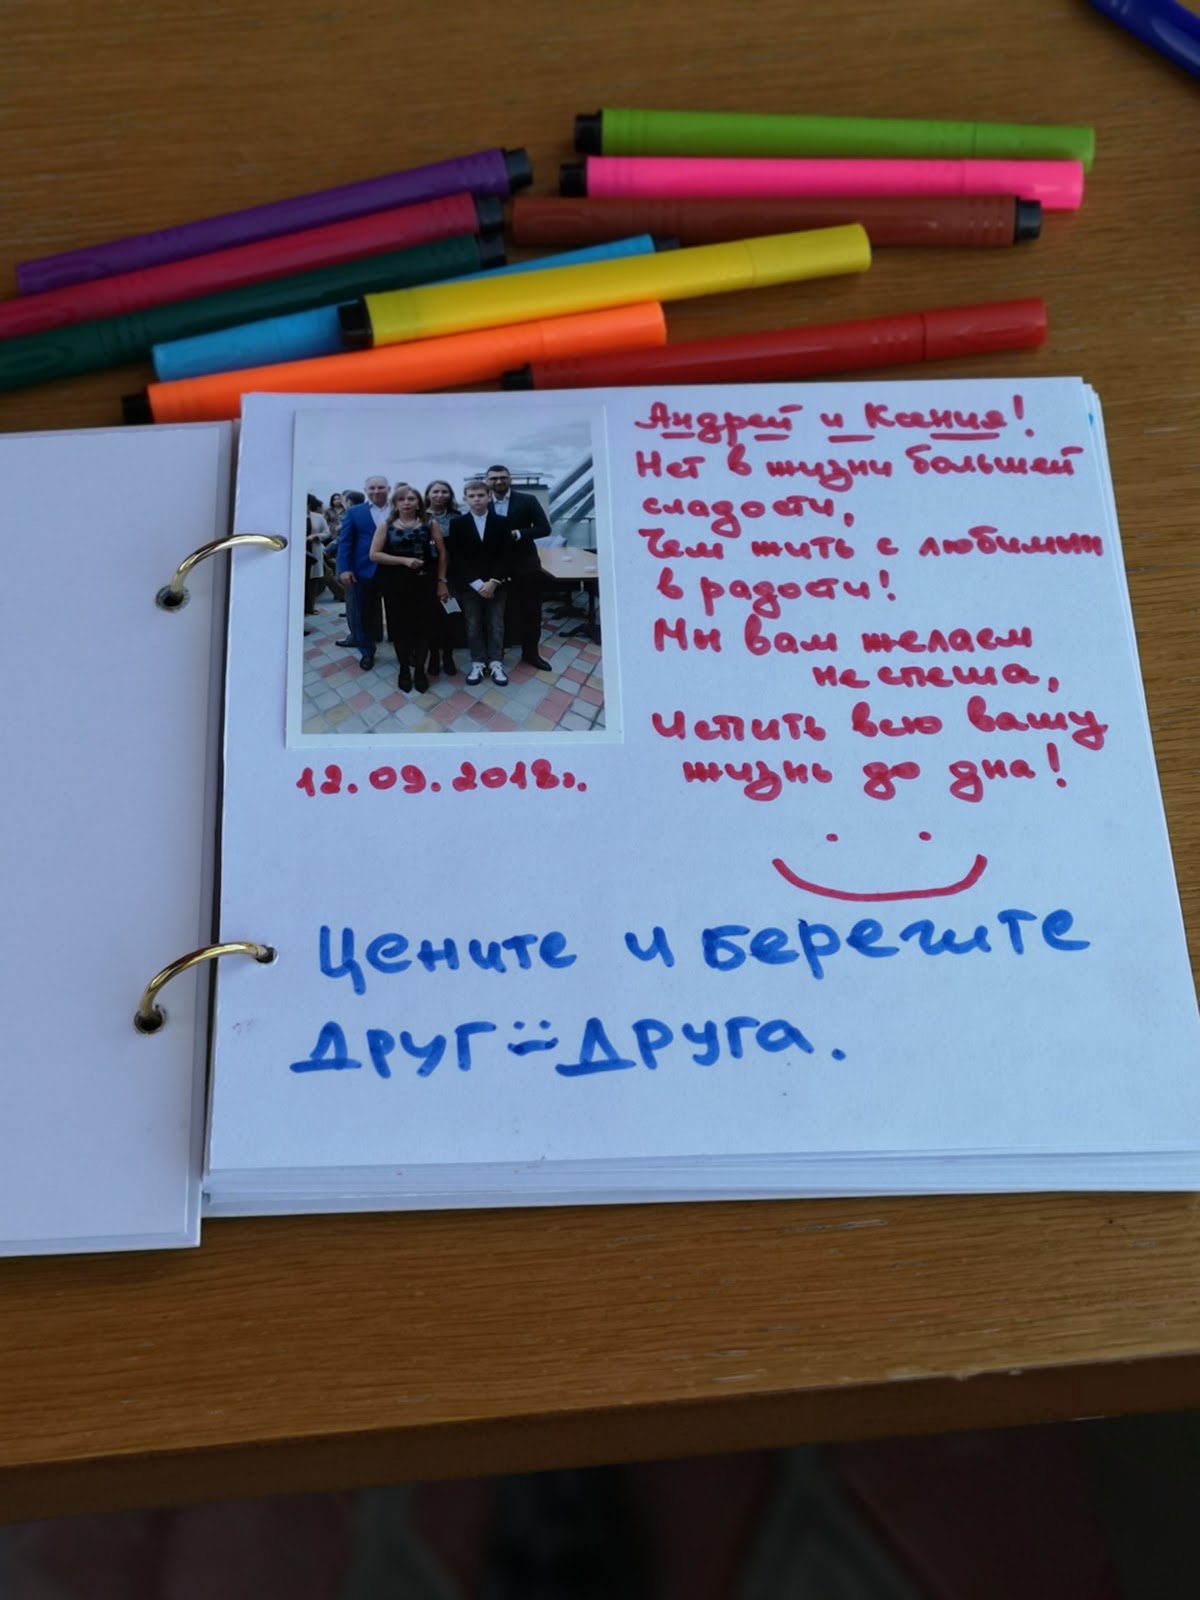 Андрей и Ксения!
Нет в жизни большей
сладости,
Чем жить с любимым
в радости!
Мы вам желаем
не спеша,
Испить всю вашу
жизнь до дна!
12.09.2018г.
Цените и берегите
друг друга.